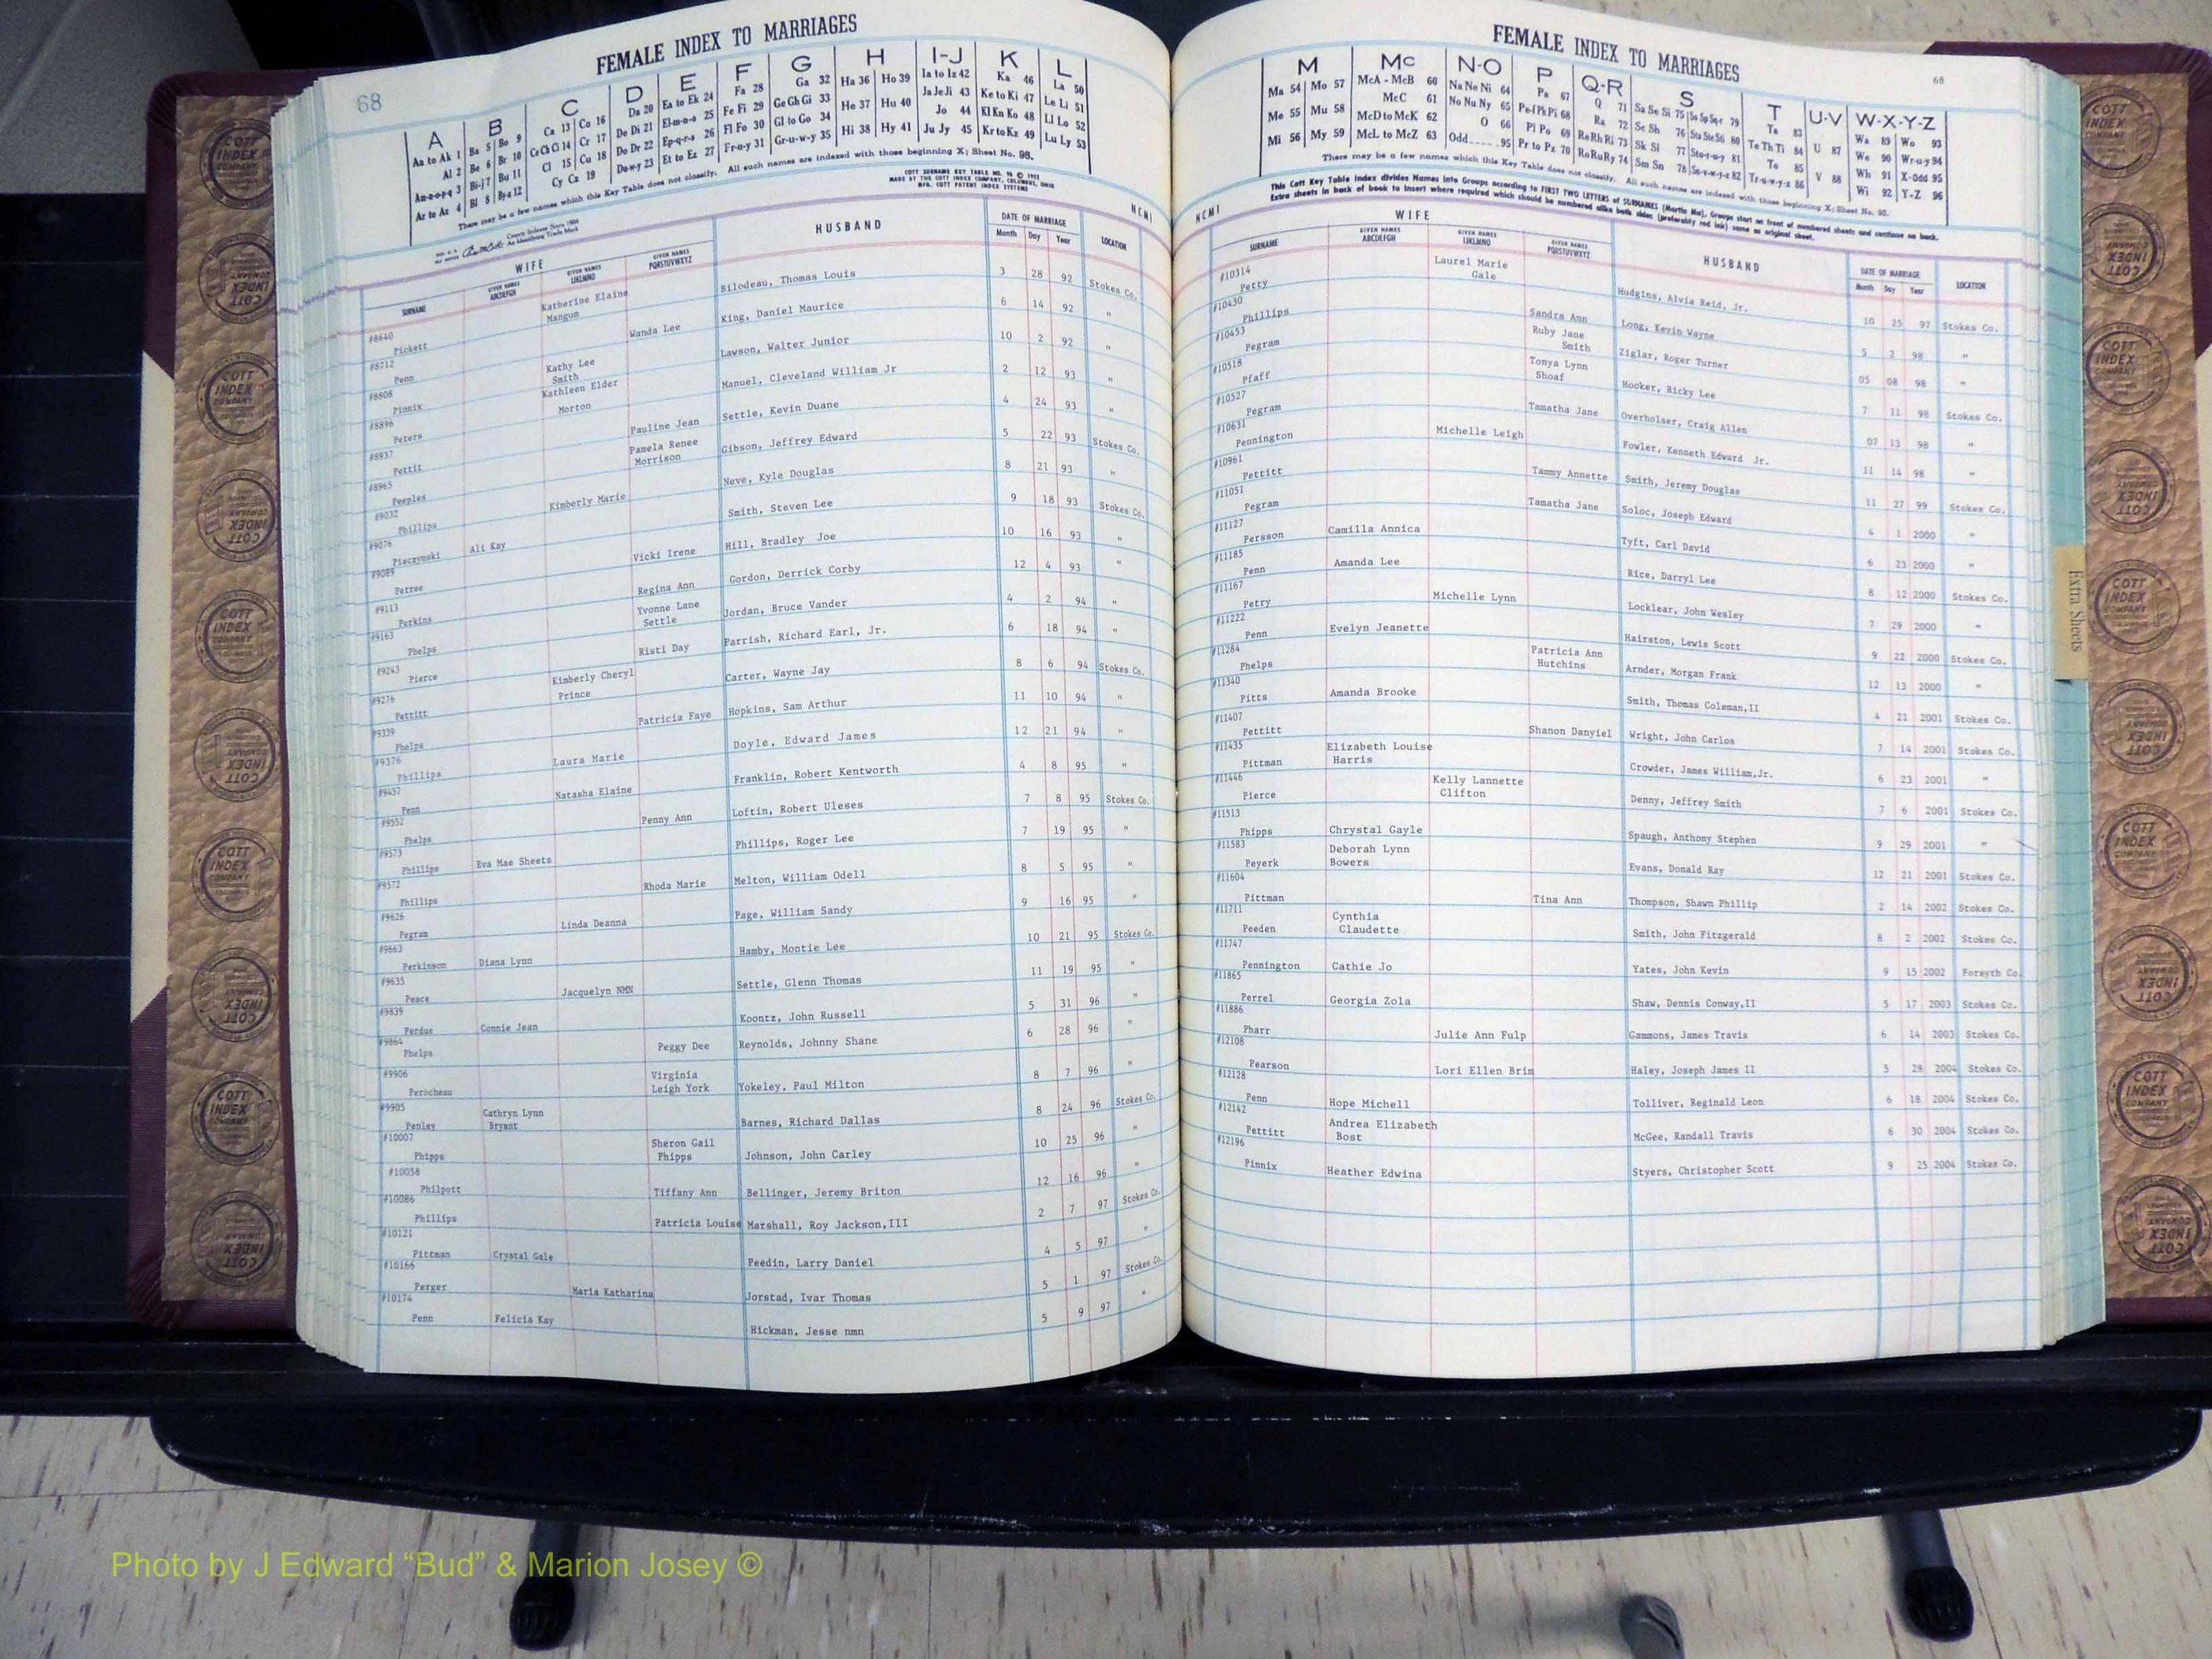 FEMALE INDEX TO MARRIAGES
68
A B C D E F G H I-J K L
Aa to Ak 1 Ba 5 Bo 9 Ca 13 Co 16 Da 20 Ea to Ek 24 Fa 28 Ga 32 Ha 36 Ho 39 Ia to Iz 42 Ka 46 La 50
Al 2 Be 6 Br 10 Ce Ch Ci 14 Cr 17 De Di 21 El-m-n-o 25 Fe Fi 29 Ge Gh Gi 33 He 37 Hu 40 Ja Je Ji 43 Ke to Ki 47 Le Li 51
Am-n-o-p-q 3 Bi-j 7 Bu 11 Cl 15 Cu 18 Do Dr 22 Ep-q-r-s 26 Fl Fo 30 Gl to Go 34 Hi 38 Hy 41 Jo 44 Kl Kn Ko 48 Ll Lo 52
Ar to Az 4 Bl 8 By-z 12 Cy Cz 19 Du-w-y 23 Et to Ez 27 Fr-u-y 31 Gr-u-w-y 35 Ju Jy 45 Kr to Kz 49 Lu Ly 53
There may be a few names which this Key Table does not classify. All such names are indexed with those beginning X; Sheet No. 95.
COTT SURNAME KEY TABLE NO. 96 © 1952
MADE BY THE COTT INDEX COMPANY, COLUMBUS, OHIO
MFG. COTT PATENT INDEX SYSTEMS
County Indexes Since 1888
An Identifying Trade Mark
NCMI
WIFE HUSBAND DATE OF MARRIAGE LOCATION
SURNAME GIVEN NAMES ABCDEFGH GIVEN NAMES IJKLMNO GIVEN NAMES PQRSTUVWXYZ Month Day Year
#8640 Pickett Katherine Elaine Mangum Bilodeau, Thomas Louis 3 28 92 Stokes Co.
#8712 Penn Wanda Lee King, Daniel Maurice 6 14 92 "
#8808 Pinnix Kathy Lee Smith Lawson, Walter Junior 10 2 92 "
#8896 Peters Kathleen Elder Morton Manuel, Cleveland William Jr 2 12 93 "
#8937 Pettit Pauline Jean Settle, Kevin Duane 4 24 93
#8965 Peeples Pamela Renee Morrison Gibson, Jeffrey Edward 5 22 93 Stokes Co.
#9032 Phillips Kimberly Marie Neve, Kyle Douglas 8 21 93 "
#9076 Pieczynski Ali Kay Smith, Steven Lee 9 18 93 Stokes Co.
#9089 Petree Vicki Irene Hill, Bradley Joe 10 16 93 "
#9113 Perkins Regina Ann Gordon, Derrick Corby 12 4 93 "
#9163 Phelps Yvonne Lane Settle Jordan, Bruce Vander 4 2 94 "
#9243 Pierce Risti Day Parrish, Richard Earl, Jr. 6 18 94 "
#9276 Pettitt Kimberly Cheryl Prince Carter, Wayne Jay 8 6 94 Stokes Co.
#9339 Phelps Patricia Faye Hopkins, Sam Arthur 11 10 94 "
#9376 Phillips Laura Marie Doyle, Edward James 12 21 94 "
#9457 Penn Natasha Elaine Franklin, Robert Kentworth 4 8 95 "
#9552 Phelps Penny Ann Loftin, Robert Uleses 7 8 95 Stokes Co.
#9573 Phillips Eva Mae Sheets Phillips, Roger Lee 7 19 95 "
#9572 Phillips Rhoda Marie Melton, William Odell 8 5 95 "
#9626 Pegram Linda Deanna Page, William Sandy 9 16 95 "
#9663 Perkinson Diana Lynn Hamby, Montie Lee 10 21 95 Stokes Co.
#9635 Peace Jacquelyn NMN Settle, Glenn Thomas 11 19 95 "
#9839 Perdue Connie Jean Koontz, John Russell 5 31 96 "
#9864 Phelps Peggy Dee Reynolds, Johnny Shane 6 28 96 "
#9906 Perocheau Virginia Leigh York Yokeley, Paul Milton 8 7 96 "
#9905 Penley Cathryn Lynn Bryant Barnes, Richard Dallas 8 24 96 Stokes Co.
#10007 Phipps Sheron Gail Phipps Johnson, John Carley 10 25 96 "
#10058 Philpott Tiffany Ann Bellinger, Jeremy Briton 12 16 96 "
#10086 Phillips Patricia Louise Marshall, Roy Jackson,III 2 7 97 Stokes Co.
#10121 Pittman Crystal Gale Peedin, Larry Daniel 4 5 97 "
#10166 Perger Maria Katharina Jorstad, Ivar Thomas 5 1 97 Stokes Co.
#10174 Penn Felicia Kay Hickman, Jesse nmn 5 9 97 "
FEMALE INDEX TO MARRIAGES
68
M Mc N-O P Q-R S T U-V W-X-Y-Z
Ma 54 Mo 57 McA - McB 60 Na Ne Ni 64 Pa 67 Q 71 Sa Se Si 75 So Sp Sq-r 79 Ta 83 U 87 Wa 89 Wo 93
Me 55 Mu 58 McC 61 No Nu Ny 65 Pe-f Ph Pi 68 Ra 72 Sc Sh 76 Sta Ste Sti 80 Te Th Ti 84 V 88 We 90 Wr-u-y 94
Mi 56 My 59 McD to McK 62 O 66 Pl Po 69 Re Rh Ri 73 Sk Sl 77 Sto-r-u-y 81 To 85 Wh 91 X-Odd 95
McL to McZ 63 Odd 95 Pr to Pz 70 Ro Ru Ry 74 Sm Sn 78 Su-v-w-y-z 82 Tr-u-w-y-z 86 Wi 92 Y-Z 96
There may be a few names which this Key Table does not classify. All such names are indexed with those beginning X; Sheet No. 95.
This Cott Key Table Index divides Names into Groups according to FIRST TWO LETTERS of SURNAMES (Martin Ma). Groups start on front of numbered sheets and continue on back.
Extra sheets in back of book to insert where required which should be numbered alike both sides (preferably red ink) same as original sheet.
NCMI
WIFE HUSBAND DATE OF MARRIAGE LOCATION
SURNAME GIVEN NAMES ABCDEFGH GIVEN NAMES IJKLMNO GIVEN NAMES PQRSTUVWXYZ Month Day Year
#10314 Petty Laurel Marie Gale Hudgins, Alvia Reid, Jr. 10 25 97 Stokes Co.
#10430 Phillips Sandra Ann Long, Kevin Wayne 5 2 98 "
#10453 Pegram Ruby Jane Smith Ziglar, Roger Turner 05 08 98 "
#10518 Pfaff Tonya Lynn Shoaf Hooker, Ricky Lee 7 11 98 Stokes Co.
#10527 Pegram Tamatha Jane Overholser, Craig Allen 07 13 98 "
#10631 Pennington Michelle Leigh Fowler, Kenneth Edward Jr. 11 14 98 "
#10961 Pettitt Tammy Annette Smith, Jeremy Douglas 11 27 99 Stokes Co.
#11051 Pegram Tamatha Jane Soloc, Joseph Edward 4 1 2000 "
#11127 Persson Camilla Annica Tyft, Carl David 6 23 2000 "
#11185 Penn Amanda Lee Rice, Darryl Lee 8 12 2000 Stokes Co.
#11167 Petry Michelle Lynn Locklear, John Wesley 7 29 2000 "
#11222 Penn Evelyn Jeanette Hairston, Lewis Scott 9 22 2000 Stokes Co.
#11284 Phelps Patricia Ann Hutchins Arnder, Morgan Frank 12 13 2000 "
#11340 Pitts Amanda Brooke Smith, Thomas Coleman,II 4 21 2001 Stokes Co.
#11407 Pettitt Shanon Danyiel Wright, John Carlos 7 14 2001 Stokes Co.
#11435 Pittman Elizabeth Louise Harris Crowder, James William,Jr. 6 23 2001 "
#11446 Pierce Kelly Lannette Clifton Denny, Jeffrey Smith 7 6 2001 Stokes Co.
#11513 Phipps Chrystal Gayle Spaugh, Anthony Stephen 9 29 2001 "
#11583 Peyerk Deborah Lynn Bowers Evans, Donald Ray 12 21 2001 Stokes Co.
#11604 Pittman Tina Ann Thompson, Shawn Phillip 2 14 2002 Stokes Co.
#11711 Peeden Cynthia Claudette Smith, John Fitzgerald 8 2 2002 Stokes Co.
#11747 Pennington Cathie Jo Yates, John Kevin 9 15 2002 Forsyth Co.
#11865 Perrel Georgia Zola Shaw, Dennis Conway,II 5 17 2003 Stokes Co.
#11886 Pharr Julie Ann Fulp Gammons, James Travis 6 14 2003 Stokes Co.
#12108 Pearson Lori Ellen Brim Haley, Joseph James II 5 28 2004 Stokes Co.
#12128 Penn Hope Michell Tolliver, Reginald Leon 6 18 2004 Stokes Co.
#12142 Pettitt Andrea Elizabeth Bost McGee, Randall Travis 6 30 2004 Stokes Co.
#12196 Pinnix Heather Edwina Styers, Christopher Scott 9 25 2004 Stokes Co.
Extra Sheets
COTT INDEX COMPANY
Photo by J Edward “Bud” & Marion Josey ©